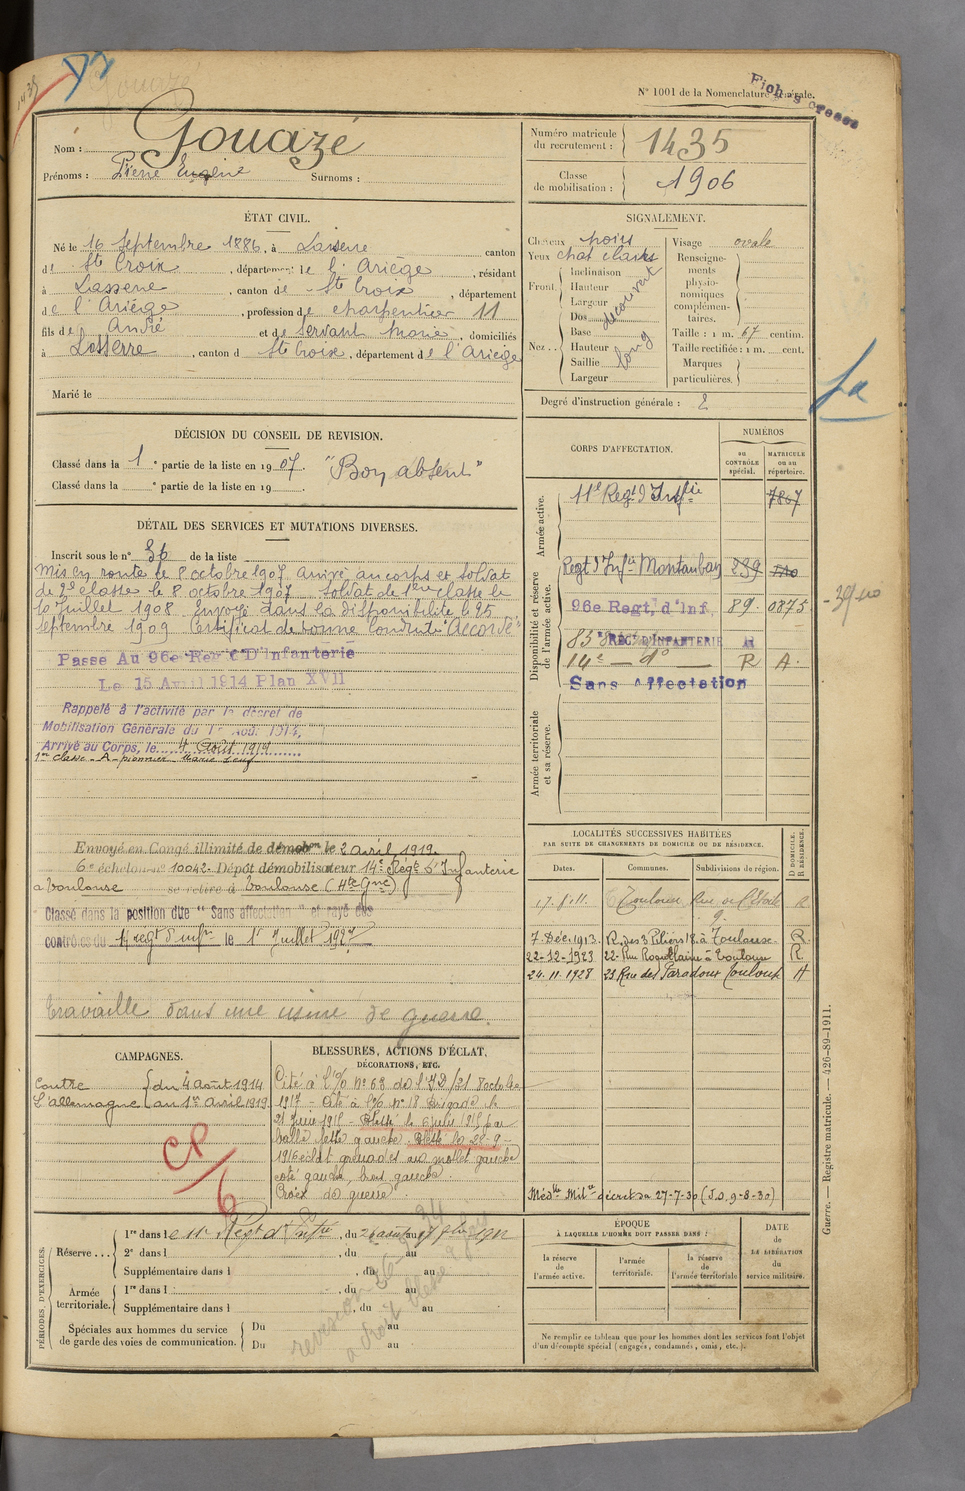 N° 1001 de la Nomenclature générale.
Fiches creees
Nom : Gouazé
Prénoms : Pierre Eugène Surnoms :
Numéro matricule du recrutement : 1435
Classe de mobilisation : 1906
ÉTAT CIVIL.
Né le 16 Septembre 1886, à Lasserre canton
de Ste Croix, département de l'Ariège, résidant
à Lasserre, canton de Ste Croix, département
de l'Ariège, profession de charpentier 11
fils de André et de Servant Marie, domiciliés
à Lasserre, canton d Ste Croix, département de l'Ariège
Marié le
SIGNALEMENT.
Cheveux noirs
Yeux chat clairs
Front. Inclinaison
Hauteur
Largeur
découvert
Nez.. Dos
Base
Hauteur
Saillie
Largeur
long
Visage ovale
Renseignements physionomiques complémentaires.
Taille : 1 m. 67 centim.
Taille rectifiée : 1 m. cent.
Marques particulières.
Degré d'instruction générale : 2
DÉCISION DU CONSEIL DE REVISION.
Classé dans la 1e partie de la liste en 1907. "Bon absent"
Classé dans la e partie de la liste en 19
DÉTAIL DES SERVICES ET MUTATIONS DIVERSES.
Inscrit sous le n° 36 de la liste
Mis en route le 8 octobre 1907 arrivé au corps et soldat
de 2e classe le 8 octobre 1907 soldat de 1ère classe le
10 Juillet 1908 Envoyé dans la disponibilité le 25
septembre 1909 Certificat de bonne Conduite "Accordé"
Passe Au 96e Reg t D'Infanterie
Le 15 Avril 1914 Plan XVII
Rappelé à l'activité par le décret de
Mobilisation Générale du 1er Août 1914,
Arrivé au Corps, le 4 Août 1914
1ère classe - A - pionnier
Envoyé en Congé illimité de démobon le 2 avril 1919
6e échelon n° 10042. Dépôt démobilisateur 14e Régt d'Infanterie
à Toulouse se retire à Toulouse (Hte Gne)
Classé dans la position dite "Sans affectation" et rayé des
contrôles du 14 regt d'infie le 1er Juillet 192
Travaille dans une usine de guerre.
CORPS D'AFFECTATION.
NUMÉROS
au CONTRÔLE spécial.
MATRICULE ou au répertoire.
Armée active.
11e Regt d'Infie 7807
Disponibilité et réserve de l'armée active.
Regt d'Infie Montauban 239
96e Regt, d'Inf. 89. 0875
83 REG. D'INFANTERIE
14e — do — R A.
Sans Affectation
Armée territoriale et sa réserve.
LOCALITÉS SUCCESSIVES HABITÉES
PAR SUITE DE CHANGEMENTS DE DOMICILE OU DE RÉSIDENCE.
Dates. Communes. Subdivisions de région. D DOMICILE. R RÉSIDENCE.
17.8.11. Toulouse Rue de l'Etoile 9. R
7 Déc. 1913. R. des 3 Piliers 18 à Toulouse R.
22-12-1923 22 Rue Roquelaine à Toulouse R.
24.11.1928 23 Rue des Paradoux Toulouse
CAMPAGNES.
Contre l'allemagne { du 4 août 1914
au 1er Avril 1919
CP/6
BLESSURES, ACTIONS D'ÉCLAT, DÉCORATIONS, ETC.
Cité à l'O/ N° 63 de l'ID/21 8 octobre
1917 - Cité à l'O/ N° 18 Brigade le
21 Juin 1915 - Blessé le 6 juin 1915 par
balle fesse gauche. Blessé le 28-9-
1916 éclat grenades au mollet gauche
coté gauche, bras gauche
Croix de guerre
Méd lle Mil re décret du 27-7-30 (J.O. 9-8-30)
PÉRIODES D'EXERCICES.
Réserve ... 1re dans le 11e Régt d'Infrie, du 26 août au
2e dans l , du au
Supplémentaire dans l , du au
Armée territoriale. 1re dans l , du au
Supplémentaire dans l , du au
Spéciales aux hommes du service de garde des voies de communication. Du au
Du au
ÉPOQUE
À LAQUELLE L'HOMME DOIT PASSER DANS :
la réserve de l'armée active.
l'armée territoriale.
la réserve de l'armée territoriale
DATE de LA LIBÉRATION du service militaire.
Ne remplir ce tableau que pour les hommes dont les services font l'objet
d'un décompte spécial (engagés, condamnés, omis, etc.).
Guerre. — Registre matricule. — 426-89-1911.